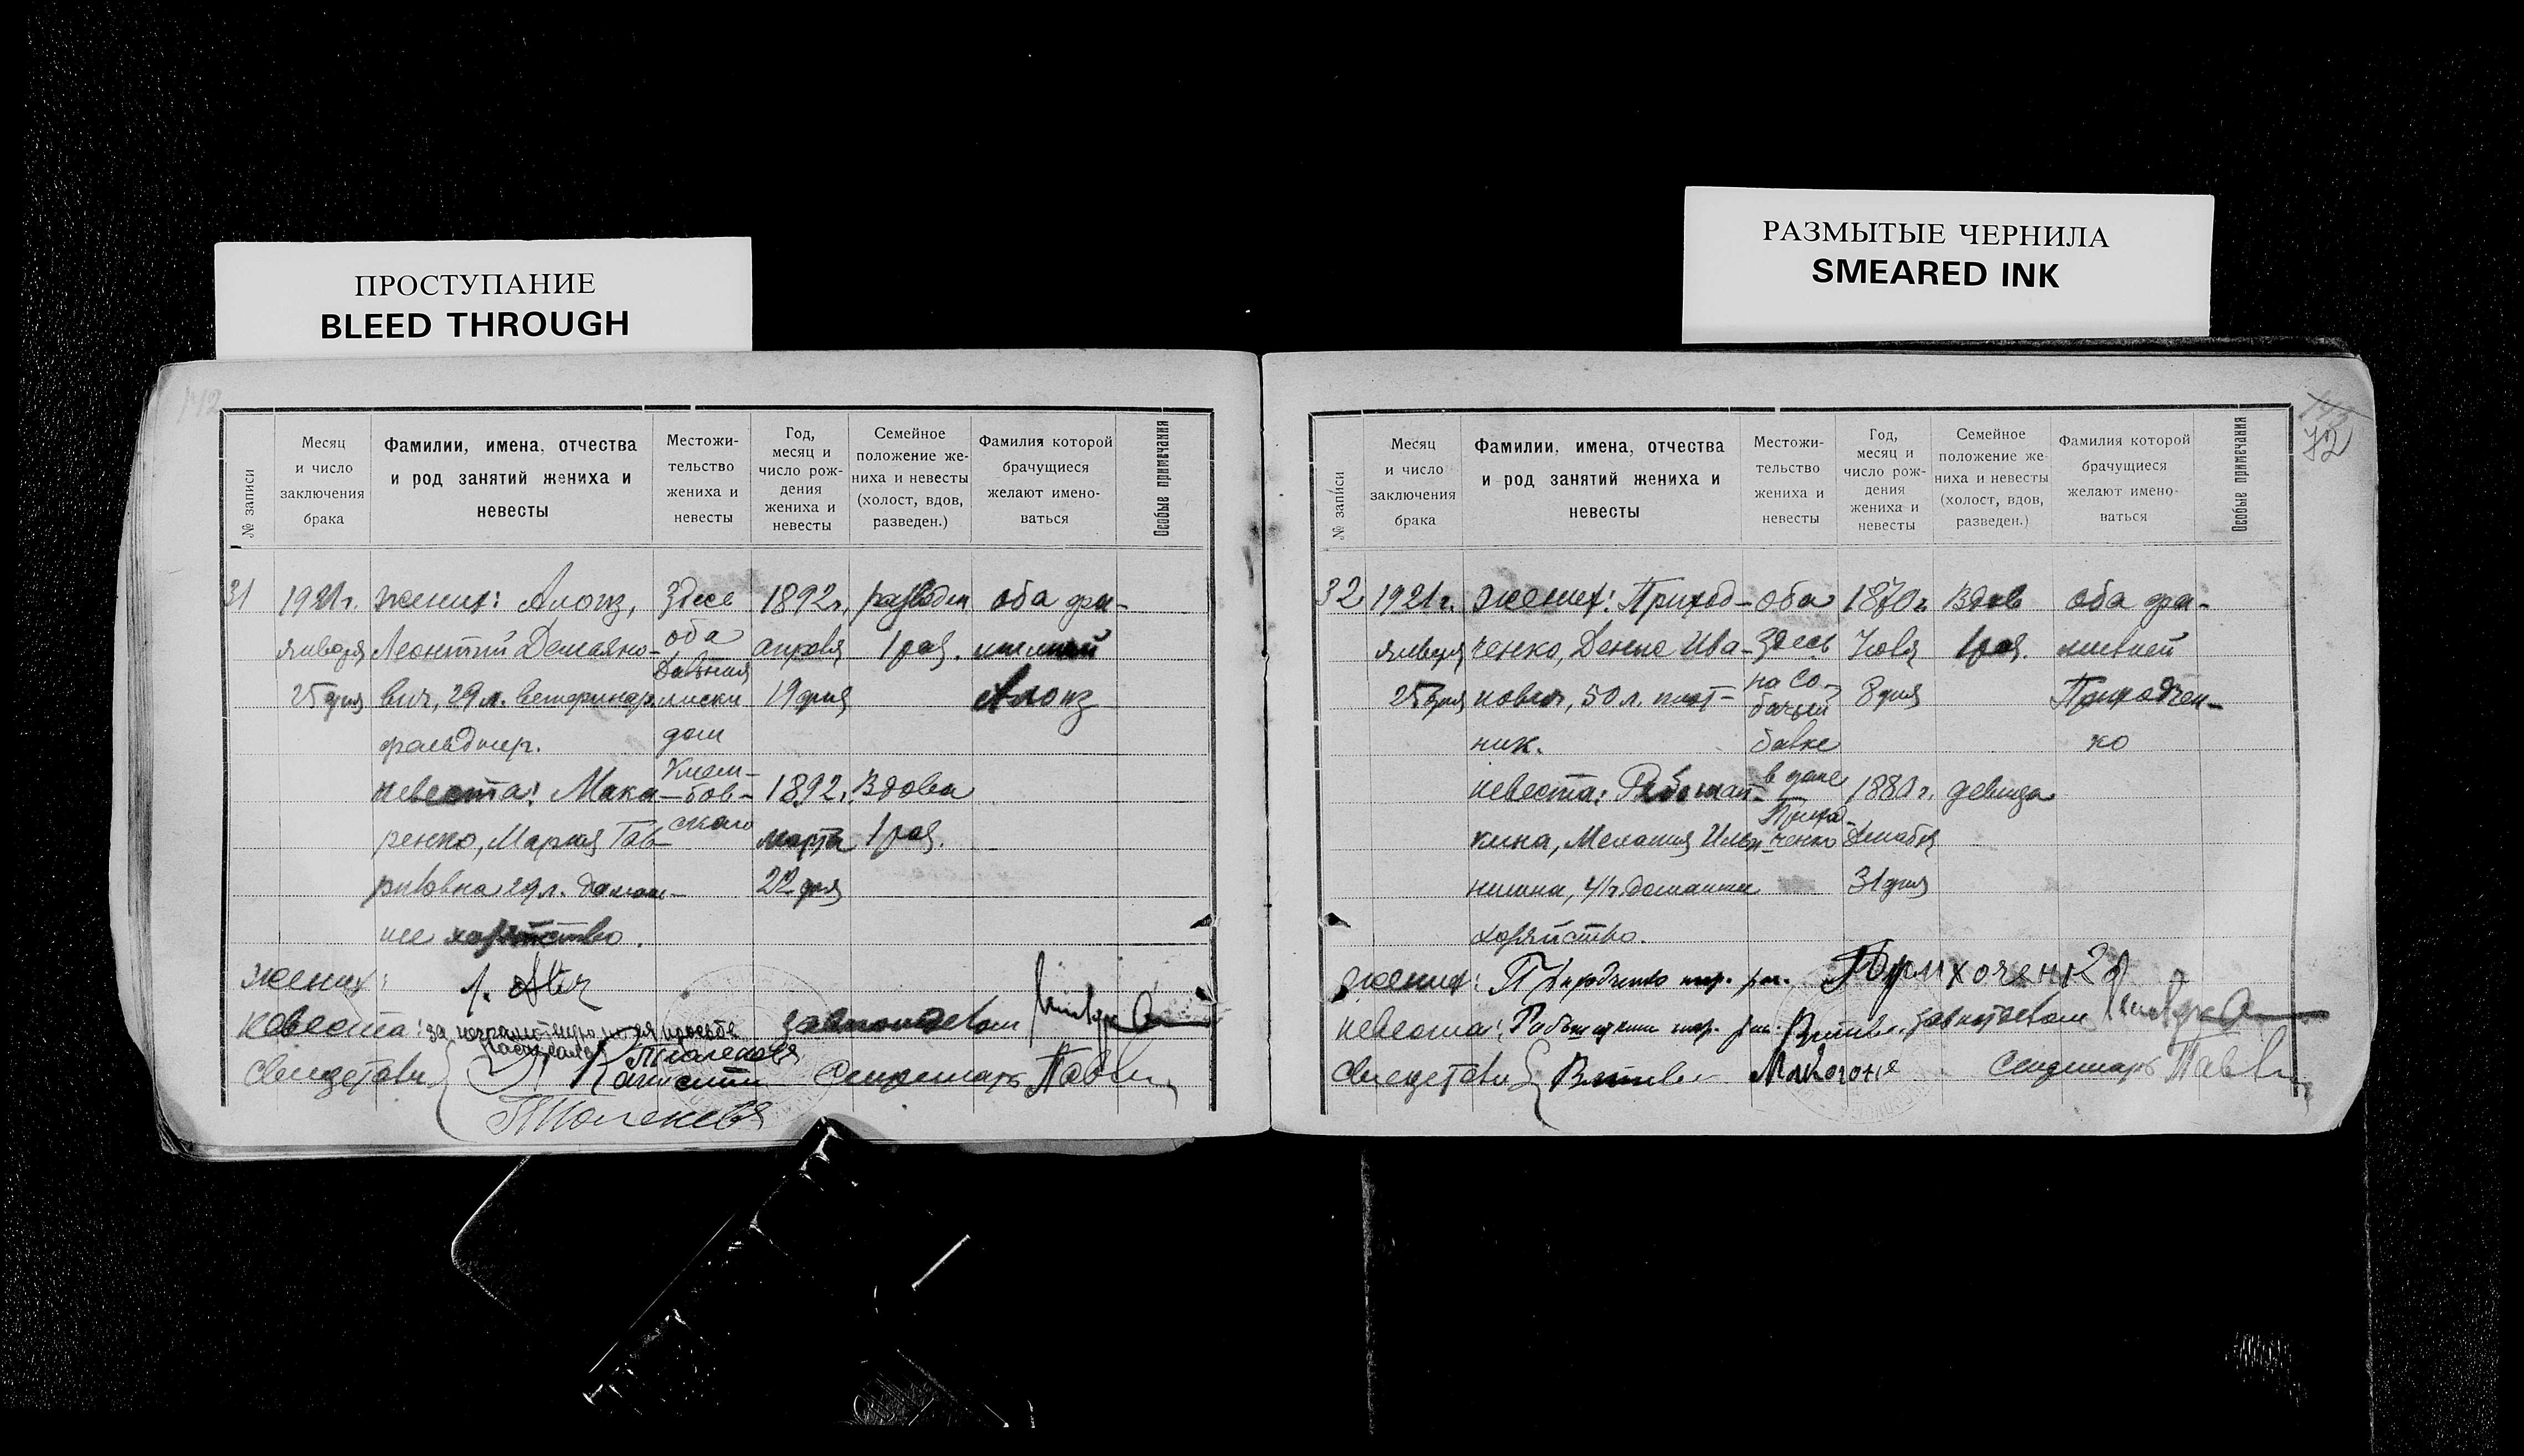 ПРОСТУПАНИЕ
BLEED THROUGH
РАЗМЫТЫЕ ЧЕРНИЛА
SMEARED INK
№ записи
Месяц
и число
заключения
брака
Фамилии, имена, отчества
и род занятий жениха и
невесты
Местожи-
тельство
жениха и
невесты
Год,
месяц и
число рож-
дения
жениха и
невесты
Семейное
положение же-
ниха и невесты
(холост, вдов,
разведен.)
Фамилия которой
брачущиеся
желают имено-
ваться
Особые примечания
31
1921 г.
января
25 дня
жених: Алоиз,
Леонтий Демьяно-
вич, 29 л. ветеринар.
фельдшер.
невеста: Мака-
ренко, Мария Гав-
риловна 29 л. домаш-
нее хозяйство.
Здесь
оба
дом
1892 г.
апреля
19 дня
1892 г.
марта
22 дня
развед
1 раз.
Вдова
1 раз.
оба фа-
милией
Алоиз
жених:
невеста: за неграмотную
свидетели
Секретарь
72
№ записи
Месяц
и число
заключения
брака
Фамилии, имена, отчества
и род занятий жениха и
невесты
Местожи-
тельство
жениха и
невесты
Год,
месяц и
число рож-
дения
жениха и
невесты
Семейное
положение же-
ниха и невесты
(холост, вдов,
разведен.)
Фамилия которой
брачущиеся
желают имено-
ваться
Особые примечания
32
1921 г.
января
25 дня
жених: Приход-
ченко, Денис Ива-
нович, 50 л. плот-
ник.
невеста:
кина, Мелания Ильи-
нишна, 41 г. домашнее
хозяйство.
оба
Здесь
на Со-
бачьей
балке
в доме
Прихо-
ченко
1870 г.
Июля
8 дня
1880 г.
Декабря
31 дня
Вдов
1 раз.
девица
оба фа-
милией
Приходчен-
ко
жених: Приходченко
невеста:
свидетели
Секретарь